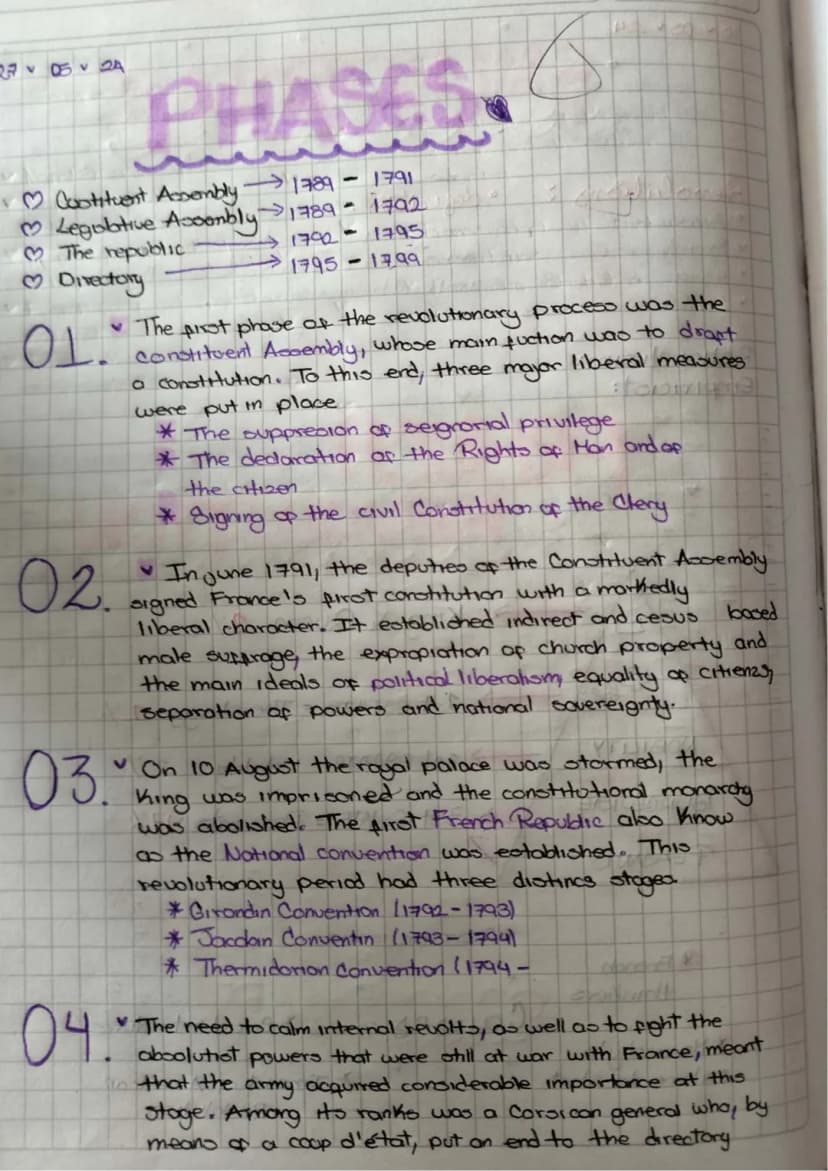 27 v 05 v 24
PHASES
Constituent Assembly → 1789 - 1791
Legislative Assembly → 1789 - 1792
The republic → 1792 - 1795
Directory → 1795 - 1799
01. The first phase of the revolutionary process was the
constituent Assembly, whose main fuction was to draft
a constitution. To this end, three major liberal measures
were put in place
* The suppresion of seignorial privilege
* The declaration of the Rights of Man and of
the citizen
* Signing of the civil Constitution of the Clery
02. In june 1791, the deputies of the Constituent Assembly
signed France's first constitution with a markedly
liberal character. It established indirect and cesus based
male suffrage, the expropiation of church property and
the main ideals of political liberalism, equality of citienzs,
separation of powers and national sovereignty.
03. On 10 August the royal palace was stormed, the
King was imprisoned and the constitutional monarchy
was abolished. The first French Republic also Know
as the National convention was established. This
revolutionary period had three distincs stages.
* Girondin Convention (1792-1793)
* Jacobin Conventin (1793-1794)
* Thermidorian Convention (1794 -
04. The need to calm internal revolts, as well as to fight the
absolutist powers that were still at war with France, meant
that the army acquired considerable importance at this
stage. Among its ranks was a Corsican general who, by
means of a coup d'état, put an end to the directory